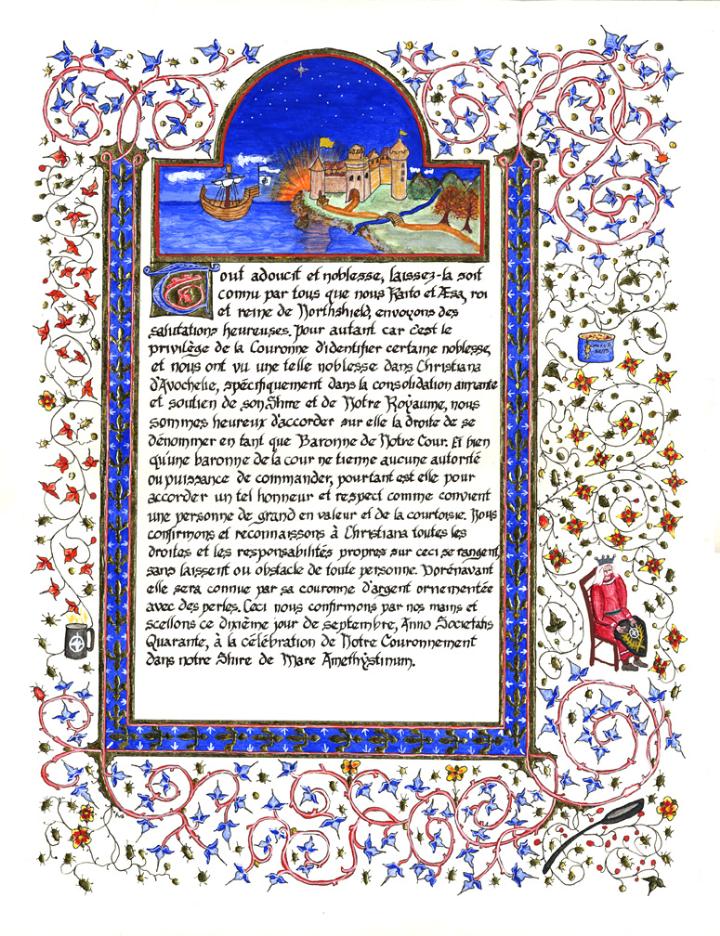 Tout adoucit et noblesse, laissez-la soit
connu par tous que nous Kaito et Æsa, roi
et reine de Northshield, envoyons des
salutations heureuses. Pour autant car c'est le
privilège de la Couronne d'identifier certaine noblesse,
et nous ont vu une telle noblesse dans Christiana
d'Avochelie, spécifiquement dans la consolidation aimante
et soutien de son Shire et de Notre Royaume, nous
sommes heureux d'accorder sur elle la droite de se
dénommer en tant que Baronne de Notre Cour. Et bien
qu'une baronne de la cour ne tienne aucune autorité
ou puissance de commander, pourtant est elle pour
accorder un tel honneur et respect comme convient
une personne de grand en valeur et de la courtoisie. Nous
confirmons et reconnaissons à Christiana toutes les
droites et les responsabilités propres sur ceci se rangent,
sans laissent ou obstacle de toute personne. Dorénavant
elle sera connue par sa couronne d'argent ornementée
avec des perles. Ceci nous confirmons par nos mains et
scellons ce dixième jour de septembre, Anno Societatis
Quarante, à la célébration de Notre Couronnement
dans notre Shire de Mare Amethystinum.